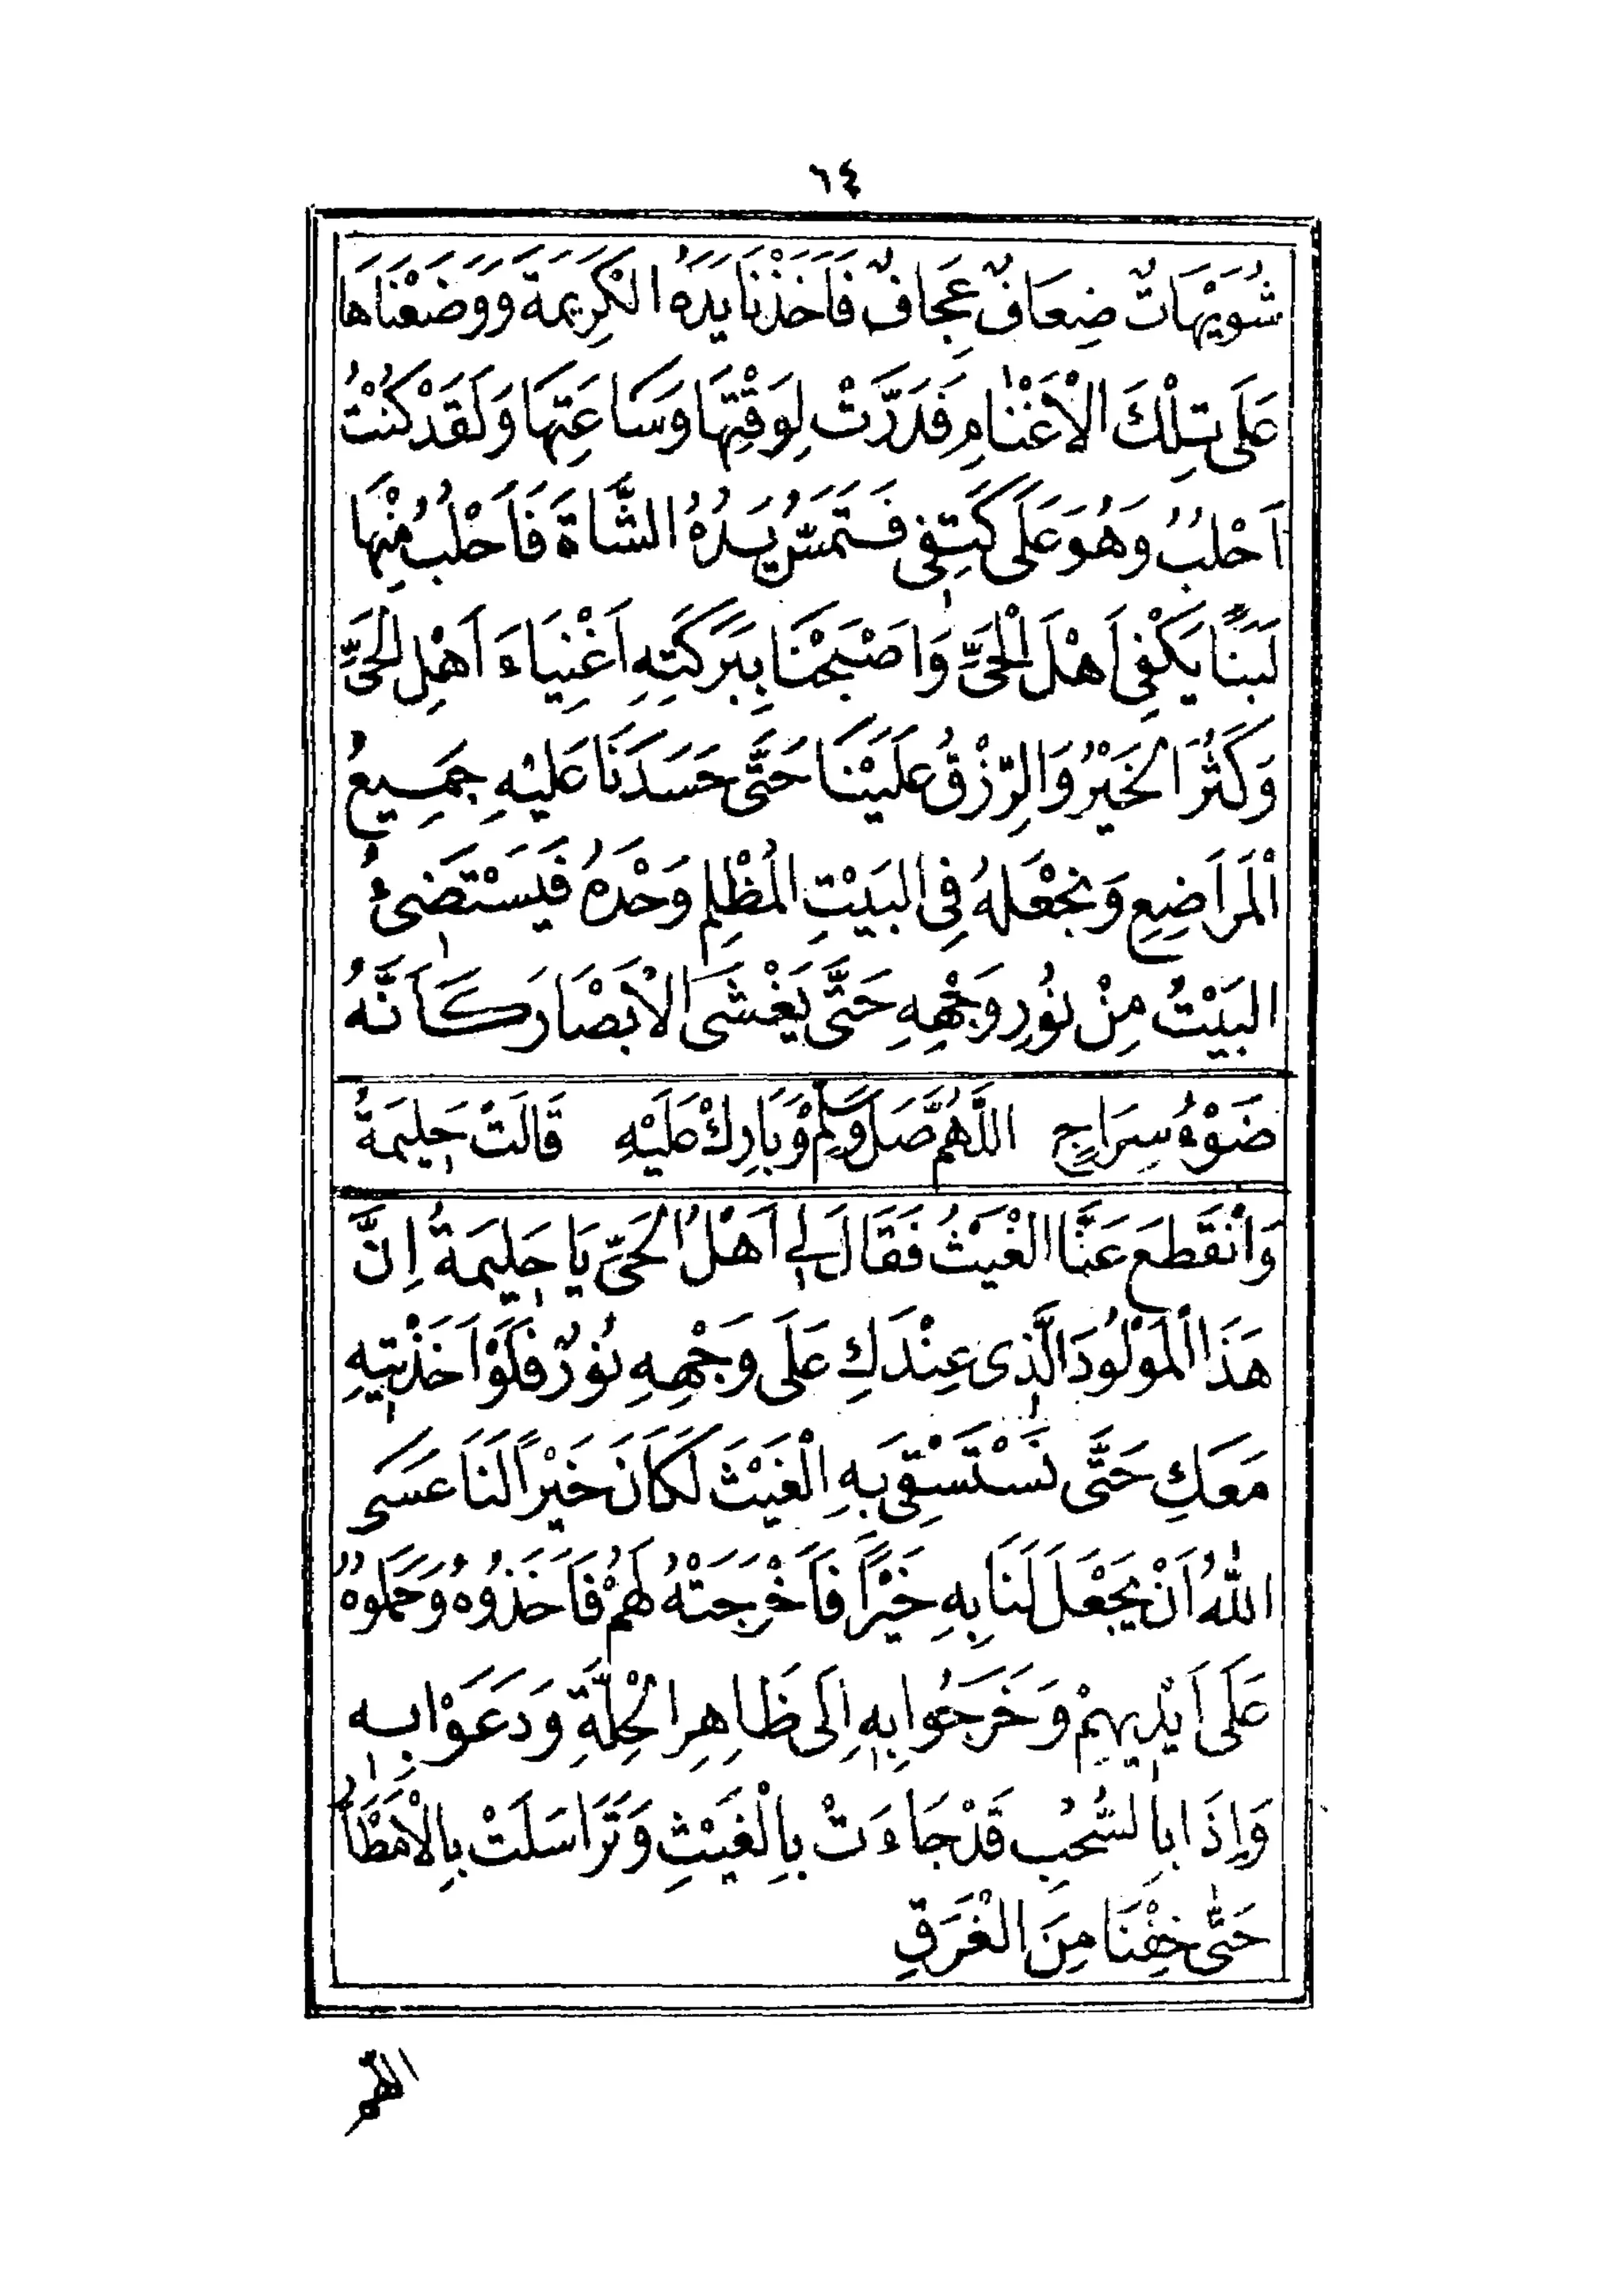 ٦٤
شُوَيْهَاتٌ ضِعَافٌ عِجَافٌ فَاَخَذْنَا يَدَهُ الْكَرِيمَةَ وَوَضَعْنَاهَا
عَلَى تِلْكَ الْاَغْنَامِ فَدَرَّتْ لِوَقْتِهَا وَسَاعَتِهَا وَلَقَدْ كُنْتُ
اَحْلُبُ وَهُوَ عَلَى كَتِفِى فَتَمَسُّ يَدُهُ الشَّاةَ فَاَحْلُبُ مِنْهَا
لَبَنًا يَكْفِى اَهْلَ الْحَىِّ وَاَصْبَحْنَا بِبَرَكَتِهِ اَغْنِيَاءَ اَهْلِ الْحَىِّ
وَكَثُرَ الْخَيْرُ وَالرِّزْقُ عَلَيْنَا حَتَّى حَسَدَنَا عَلَيْهِ جَمِيعُ
الْمَرَاضِعِ وَنَجْعَلُهُ فِى الْبَيْتِ الْمُظْلِمِ وَحْدَهُ فَيَسْتَضِىُٔ
الْبَيْتُ مِنْ نُورِ وَجْهِهِ حَتَّى يَغْشَى الْاَبْصَارَ كَاَنَّهُ
ضَوْءُ سِرَاجٍ اللَّهُمَّ صَلِّ وَسَلِّمْ وَبَارِكْ عَلَيْهِ قَالَتْ حَلِيمَةُ
وَانْقَطَعَ عَنَّا الْغَيْثُ فَقَالَ لِى اَهْلُ الْحَىِّ يَا حَلِيمَةُ اِنَّ
هَذَا الْمَوْلُودَ الَّذِى عِنْدَكِ عَلَى وَجْهِهِ نُورٌ فَلَوْ اَخَذْتِيهِ
مَعَكِ حَتَّى نَسْتَسْقِىَ بِهِ الْغَيْثَ لَكَانَ خَيْرًا لَنَا عَسَى
اللّٰهُ اَنْ يَجْعَلَ لَنَا بِهِ خَيْرًا فَاَخْرَجَتْهُ لَهُمْ فَاَخَذُوهُ وَحَمَلُوهُ
عَلَى اَيْدِيهِمْ وَخَرَجُوا بِهِ اِلَى ظَاهِرِ الْحِلَّةِ وَدَعَوْا بِهِ
وَاِذَا بِالسُّحُبِ قَدْ جَاءَتْ بِالْغَيْثِ وَتَرَاسَلَتْ بِالْاَمْطَارِ
حَتَّى خِفْنَا مِنَ الْغَرَقِ
اللّهم